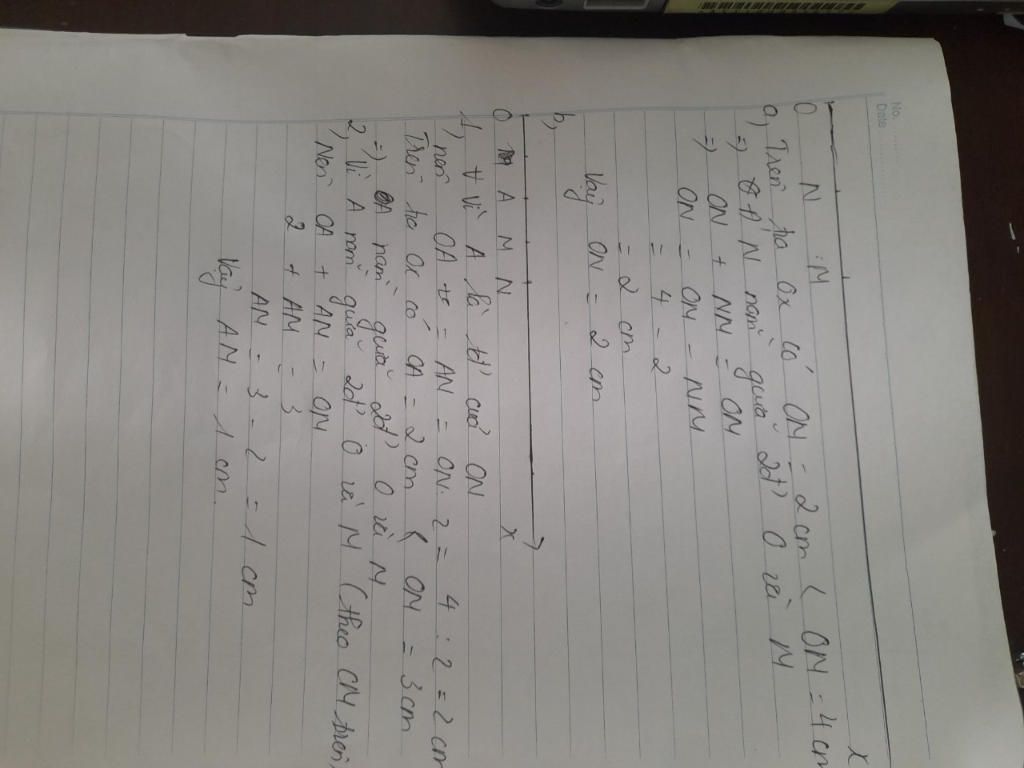 No.
Date
x
O N M
a, Trên tia Ox có ON = 2 cm < OM = 4 cm
=) N nằm giữa 2đ' O và M
=) ON + NM = OM
=) ON = OM - NM
= 4 - 2
= 2 cm
Vậy ON = 2 cm
b,
O A M N x
1, + Vì A là tđ' của ON
nên OA = AN = ON : 2 = 4 : 2 = 2 cm
Trên tia Ox có OA = 2 cm < OM = 3 cm
=) A nằm giữa 2đ' O và M
2, Vì A nằm giữa 2đ' O và M (theo CM trên)
Nên OA + AM = OM
2 + AM = 3
AM = 3 - 2 = 1 cm
Vậy AM = 1 cm.